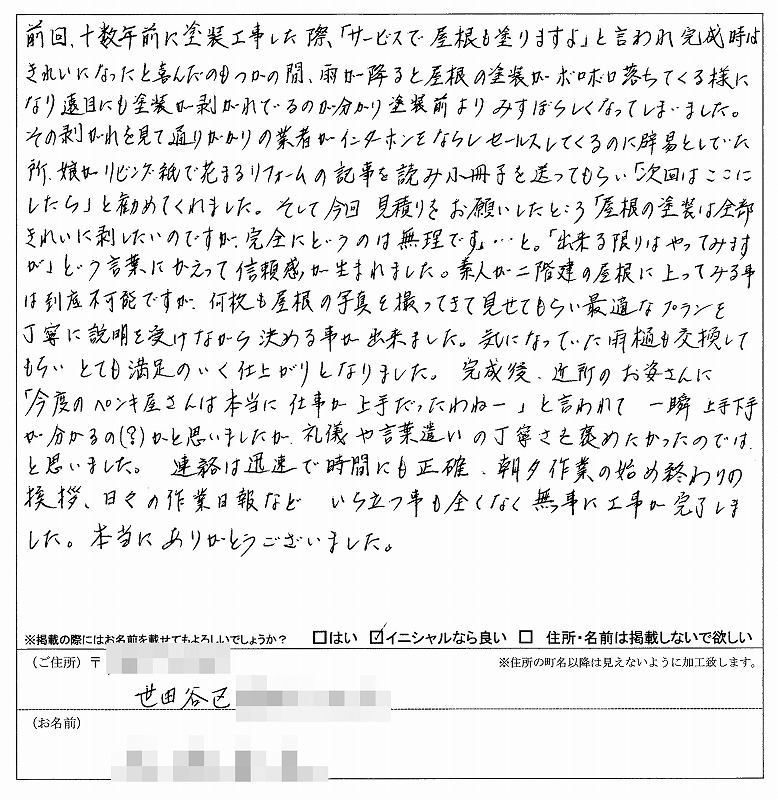 前回、十数年前に塗装工事した際、「サービスで屋根も塗りますよ」と言われ完成時は
きれいになったと喜んだのもつかの間、雨が降ると屋根の塗装がボロボロ落ちてくる様に
なり遠目にも塗装が剥がれているのが分かり塗装前よりみすぼらしくなってしまいました。
その剥がれを見て通りがかりの業者がインターホンをならしセールスしてくるのに辟易としていた
所、娘がリビング紙で花まるリフォームの記事を読み小冊子を送ってもらい「次回はここに
したら」と勧めてくれました。そして今回 見積りをお願いしたところ「屋根の塗装は全部
きれいに剥したいのですが、完全にというのは無理です」…と。「出来る限りはやってみます
が」という言葉にかえって信頼感が生まれました。素人が二階建の屋根に上ってみる事
は到底不可能ですが、何枚も屋根の写真を撮ってきて見せてもらい最適なプランを
丁寧に説明を受けながら決める事が出来ました。気になっていた雨樋も交換して
もらい とても満足のいく仕上がりとなりました。 完成後、近所のお婆さんに
「今度のペンキ屋さんは本当に仕事が上手だったわねー」と言われて 一瞬 上手下手
が分かるの(?)かと思いましたが、礼儀や言葉遣いの丁寧さを褒めたかったのでは、
と思いました。 連絡は迅速で時間にも正確、朝夕作業の始め終わりの
挨拶、日々の作業日報など いら立つ事も全くなく無事に工事が完了しま
した。本当にありがとうございました。
※掲載の際にはお名前を載せてもよろしいでしょうか? □はい ☑イニシャルなら良い □ 住所・名前は掲載しないで欲しい
(ご住所)〒 ※住所の町名以降は見えないように加工致します。
世田谷区
(お名前)